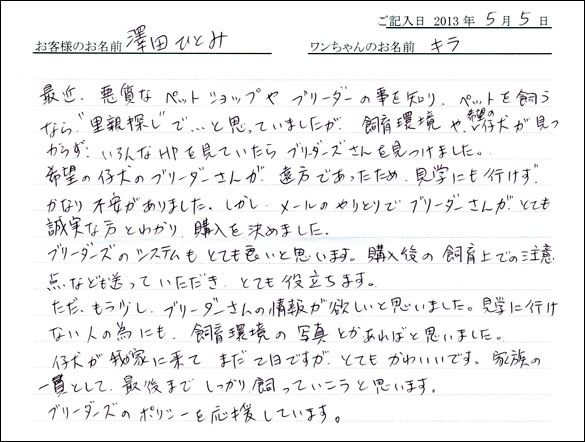 ご記入日 2013年 5月 5日
お客様のお名前 澤田ひとみ ワンちゃんのお名前 キラ
最近、悪質な ペットショップや ブリーダーの事を知り、ペットを飼う
なら"里親探し"で…と思っていましたが、飼育環境や、希望の仔犬が見つ
からず、いろんなHPを見ていたら ブリーダーズさんを見つけました。
希望の仔犬のブリーダーさんが、遠方であったため、見学にも行けず、
かなり不安がありました。しかし、メールのやりとりでブリーダーさんが、とても
誠実な方とわかり、購入を決めました。
ブリーダーズのシステムもとても良いと思います。購入後の飼育上での注意
点なども送っていただき、とても役立ちます。
ただ、もう少し、ブリーダーさんの情報が欲しいと思いました。見学に行け
ない人の為にも、飼育環境の写真とかあればと思いました。
仔犬が我が家に来て まだ7日ですが、とてもかわいいです。家族の
一員として、最後まで しっかり飼っていこうと思います。
ブリーダーズのポリシーを応援しています。